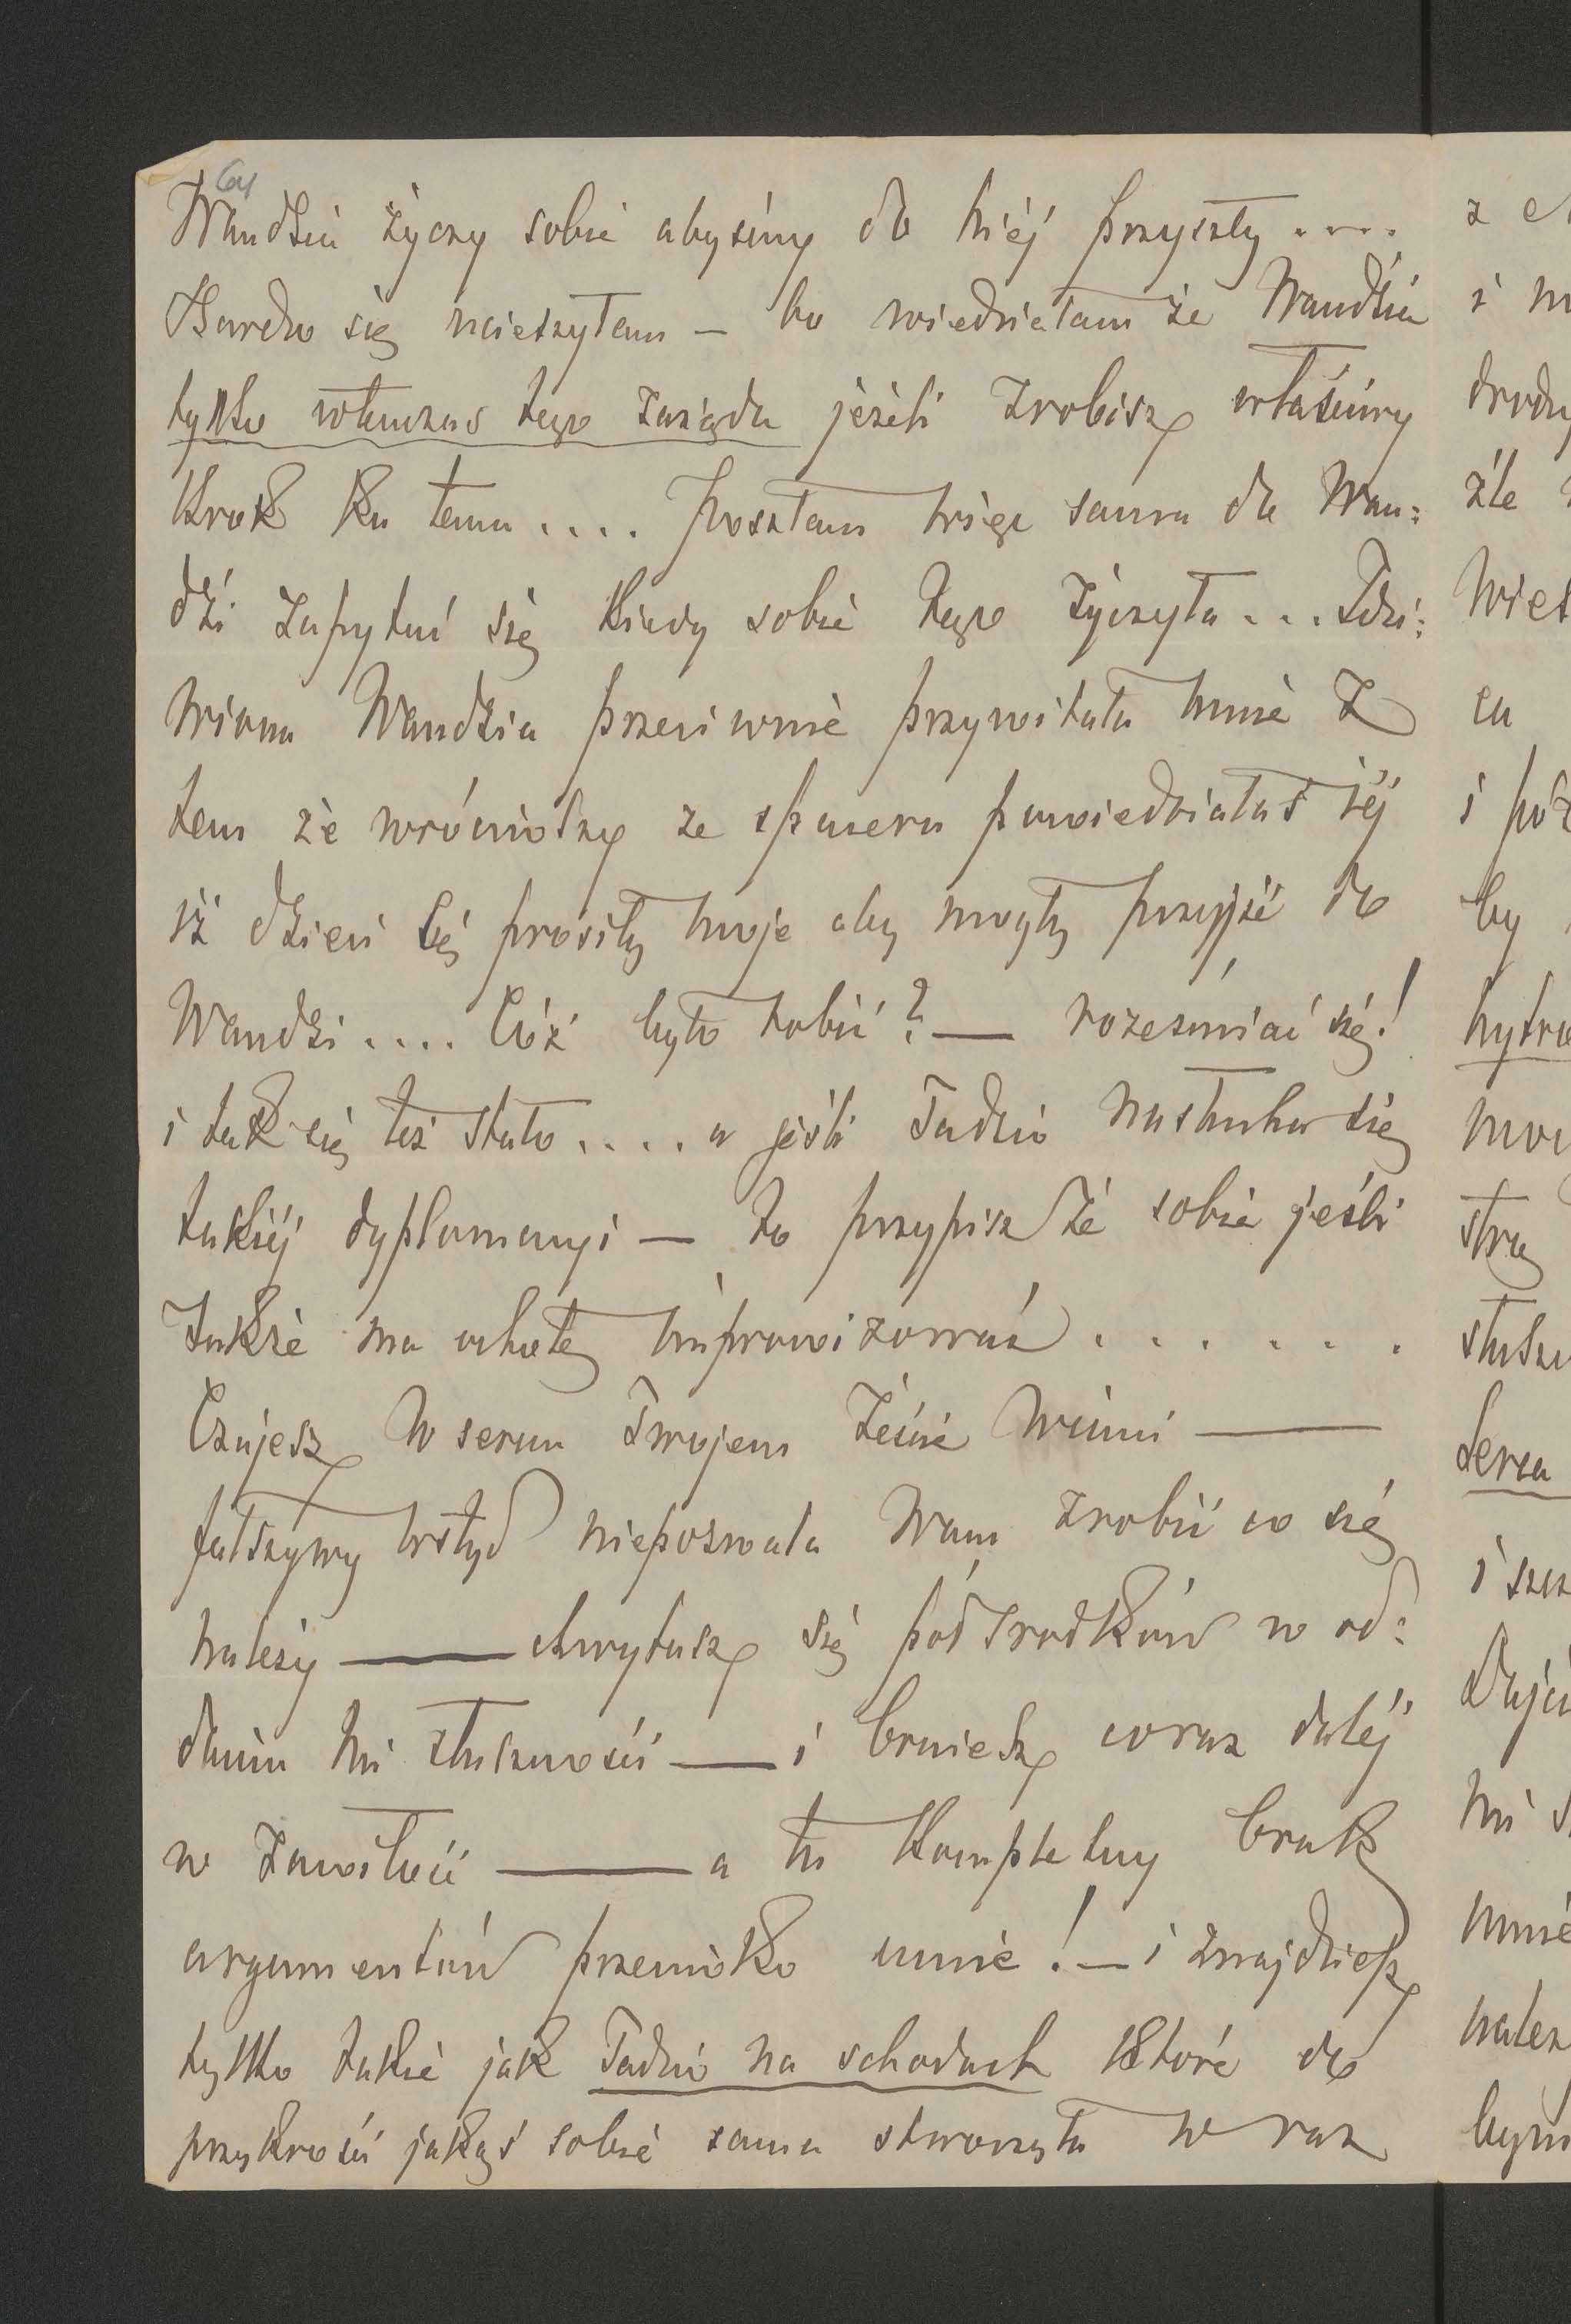 64
Wandzia życzy sobie abyśmy do niéj przyszły....
Bardzo się ucieszyłam — bo wiedziałam że Wandzia
tylko wtenczas tego zażąda jeżeli zrobisz właściwy
krok ku temu.... poszłam więc sama do Wan:
dzi zapytać się kiedy sobie tego życzyła... Zdzi:
wiona Wandzia przeciwnie przywitała mnie z
tem że wróciwszy ze spaceru powiedziałaś jéj
iż dzieci té prosiły moje aby mogły przyjść do
Wandzi.... Cóż było robić? — roześmiać się!
i tak się też stało.... a jeśli Tadzio nasłucha się
takiéj dyplomacyi — to przypisz że sobie jeśli
także ma ochotę improwizować......
Czujesz w sercu Twojem żeście winni —
fałszywy wstyd niepozwala Wam zrobić co się
należy — chwytasz się pół środków w od:
daniu mi słuszności — i brniesz coraz daléj
w zawiłość — a tu kompletny brak
argumentów przeciwko mnie! — i znajdziesz
tylko takie jak Tadzio na schodach które do
przykrości jakąś sobie sama stworzyła w raz
z
i
drodz
źle
wiet
ca
i póź
by
hytro
mou
strę
słusz
serca
i szcz
dając
mi s
mnie
należ
bym